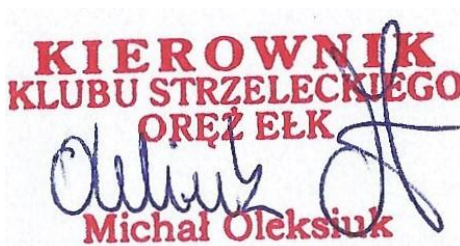 KIEROWNIK
KLUBU STRZELECKIEGO
ORĘŻ EŁK
Michał Oleksiuk